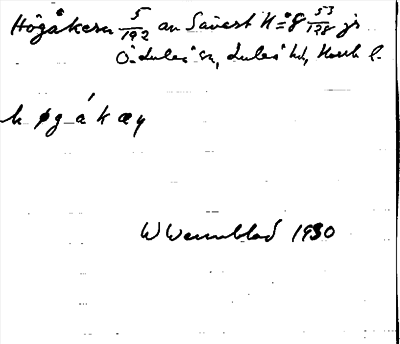 Högåkern 5/192 av Sävast N:o 8 53/128 jr
Ö. Luleå sn, Luleå hd, Norrb l.
høgákæɳ
W Wennblad 1930